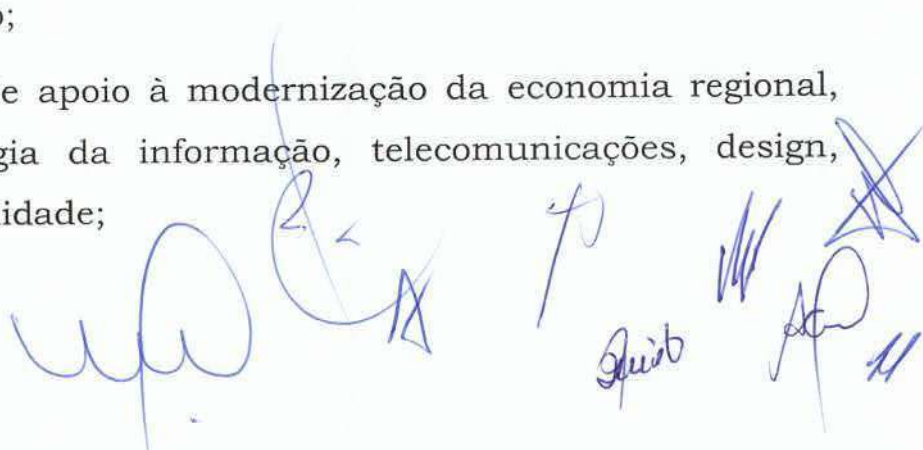 o;
e apoio à modernização da economia regional,
gia da informação, telecomunicações, design,
lidade;